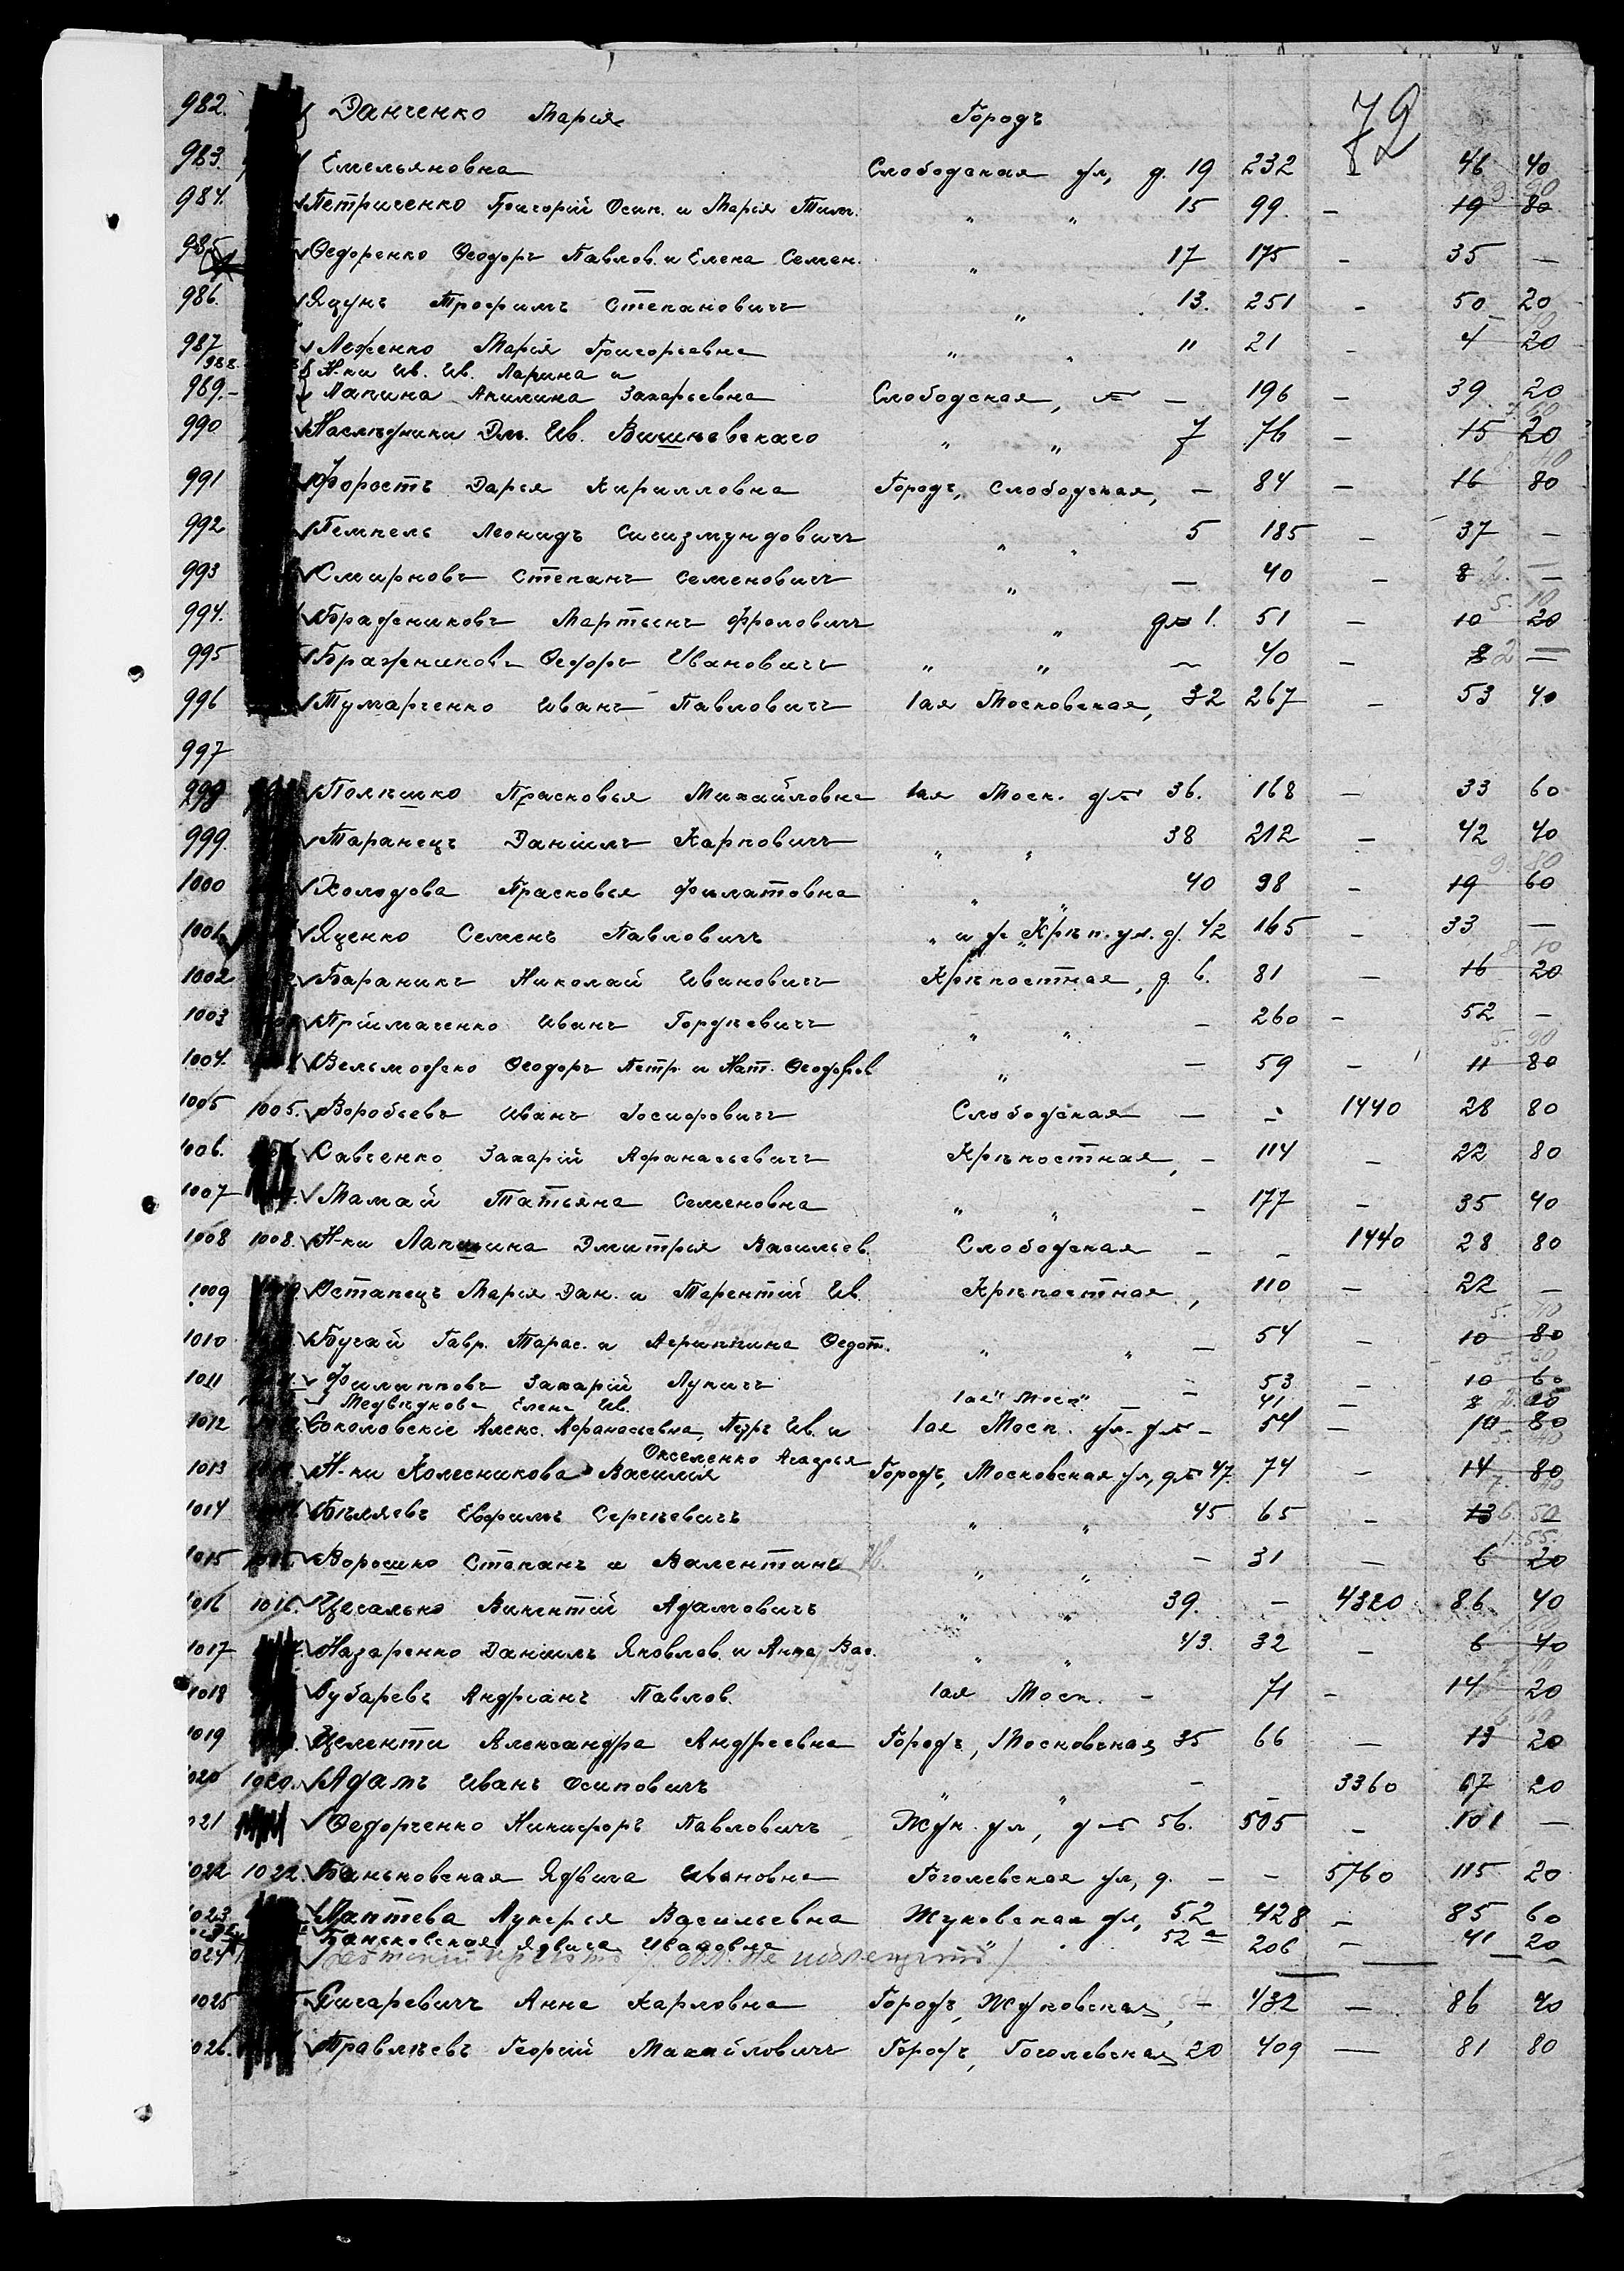 72
982. Данченко Марія Городъ
983 Емельяновна Слободская ул, д. 19 232 - 46 40
984. Петриченко Григорій Осип. и Марія Тим. " " 15 99. - 19 80 9 90
985 Ѳедоренко Ѳеодоръ Павлов. и Елена Семен. " 17 175 - 35 -
986. Яцунъ Трофимъ Степановичъ " 13. 251 - 50 20
987/988. Леженко Марія Григорьевна " " 11 21 - 4 20
Н-ки Ив. Ив. Ларина и
989.- Лапина Акилина Захарьевна Слободская, - 196 - 39 20
990 Наслѣдники Дм. Ив. Вишневскаго " " 7 76 - 15 20 7. 60
991 Форостъ Дарья Кирилловна Городъ, Слободская, - 84 - 16 80 8. 40
992 Гемпель Леонидъ Сигизмундовичъ " " 5 185 - 37 -
993 Смирновъ Степанъ Семеновичъ " - 40 - 8 2. -
994. Бражениковъ Мартынъ Фроловичъ " 1. 51 - 10 20 5. 10
995 Бражениковъ Ѳедоръ Ивановичъ " " - 40 - 8 2 -
996 Тумарченко Иванъ Павловичъ 1ая Московская, 32 267 - 53 40
997
998 Полѣшко Прасковья Михайловна 1ая Моск. 36. 168 - 33 60
999. Таранецъ Даніилъ Карповичъ " " 38 212 - 42 40
1000 Холодова Прасковья Филатовна " " 40 98 - 19 60 9. 80
1001 Яценко Семенъ Павловичъ " и Крѣп. ул. д. 42 165 - 33 -
1002 Бараникъ Николай Ивановичъ Крѣпостная, д. 6. 81 - 16 20 8 10
1003 Пріймаченко Иванъ Гордѣевичъ " " - 260 - 52 -
1004. Вельможко Ѳеодоръ Петр. и Нат. Ѳеодоров " - 59 - 11 80 5. 90
1005 1005. Воробьевъ Иванъ Іосифовичъ Слободская - - 1440 28 80
1006. Савченко Захарій Афанасьевичъ Крѣпостная, - 114 - 22 80
1007 Мамай Татьяна Семеновна " " - 177 - 35 40
1008 1008. Н-ки Лапшина Дмитрія Васильев. Слободская - - 1440 28 80
1009 Остапецъ Марія Дан. и Терентій Ив. Крѣпостная, 110 - 22 -
1010 Бугай Гавр. Тарас. и Агриппина Ѳедот. " " - 54 - 10 80 5. 40
1011 Филипповъ Захарій Лукичъ " " - 53 - 10 60 5. 30
Медвѣдкова Елена Ив. 1ая Моск - 41 - 8 20
1012 Соколовскіе Алекс. Афанасьевна, Петръ Ив. и 1ая Моск. ул. - 54 - 10 80 5. 40
Окселенко Агафья
1013 Н-ки Колесникова Василія Городъ, Московская ул, 47. 74 - 14 80 7. 40
1014 Бѣляевъ Евфимъ Сергѣевичъ " " 45 65 - 13 - 6. 50
1015 Ворошко Степанъ и Валентина " " - 31 - 6 20 1. 55
1016 1016. Цесалько Викентій Адамовичъ " " 39. - 4320 86 40
1017 Назаренко Даніилъ Яковлев. и Анна Вас. " " 43. 32 - 6 40
1018 Губаревъ Андріанъ Павлов. 1ая Моск. - 71 - 14 20
1019 Целенти Александра Андреевна Городъ, Московская 35 66 - 13 20
1020 1020. Адамъ Иванъ Осиповичъ " " - - 3360 67 20
1021 Ѳедорченко Никифоръ Павловичъ Жук. ул, 56. 505 - 101 -
1022 1022. Баньковская Ядвига Ивановна Гоголевская ул, д. - - 5760 115 20
1023 Лаптева Лукерья Васильевна Жуковская ул, 52 428 - 85 60
Баньковская Ядвига Ивановна " 52а 206 - 41 20
1024
1025 Гигаревичъ Анна Карловна Городъ, Жуковская, - 432 - 86 40
1026. Правлѣевъ Георгій Михайловичъ Городъ, Гоголевская 20 409 - 81 80